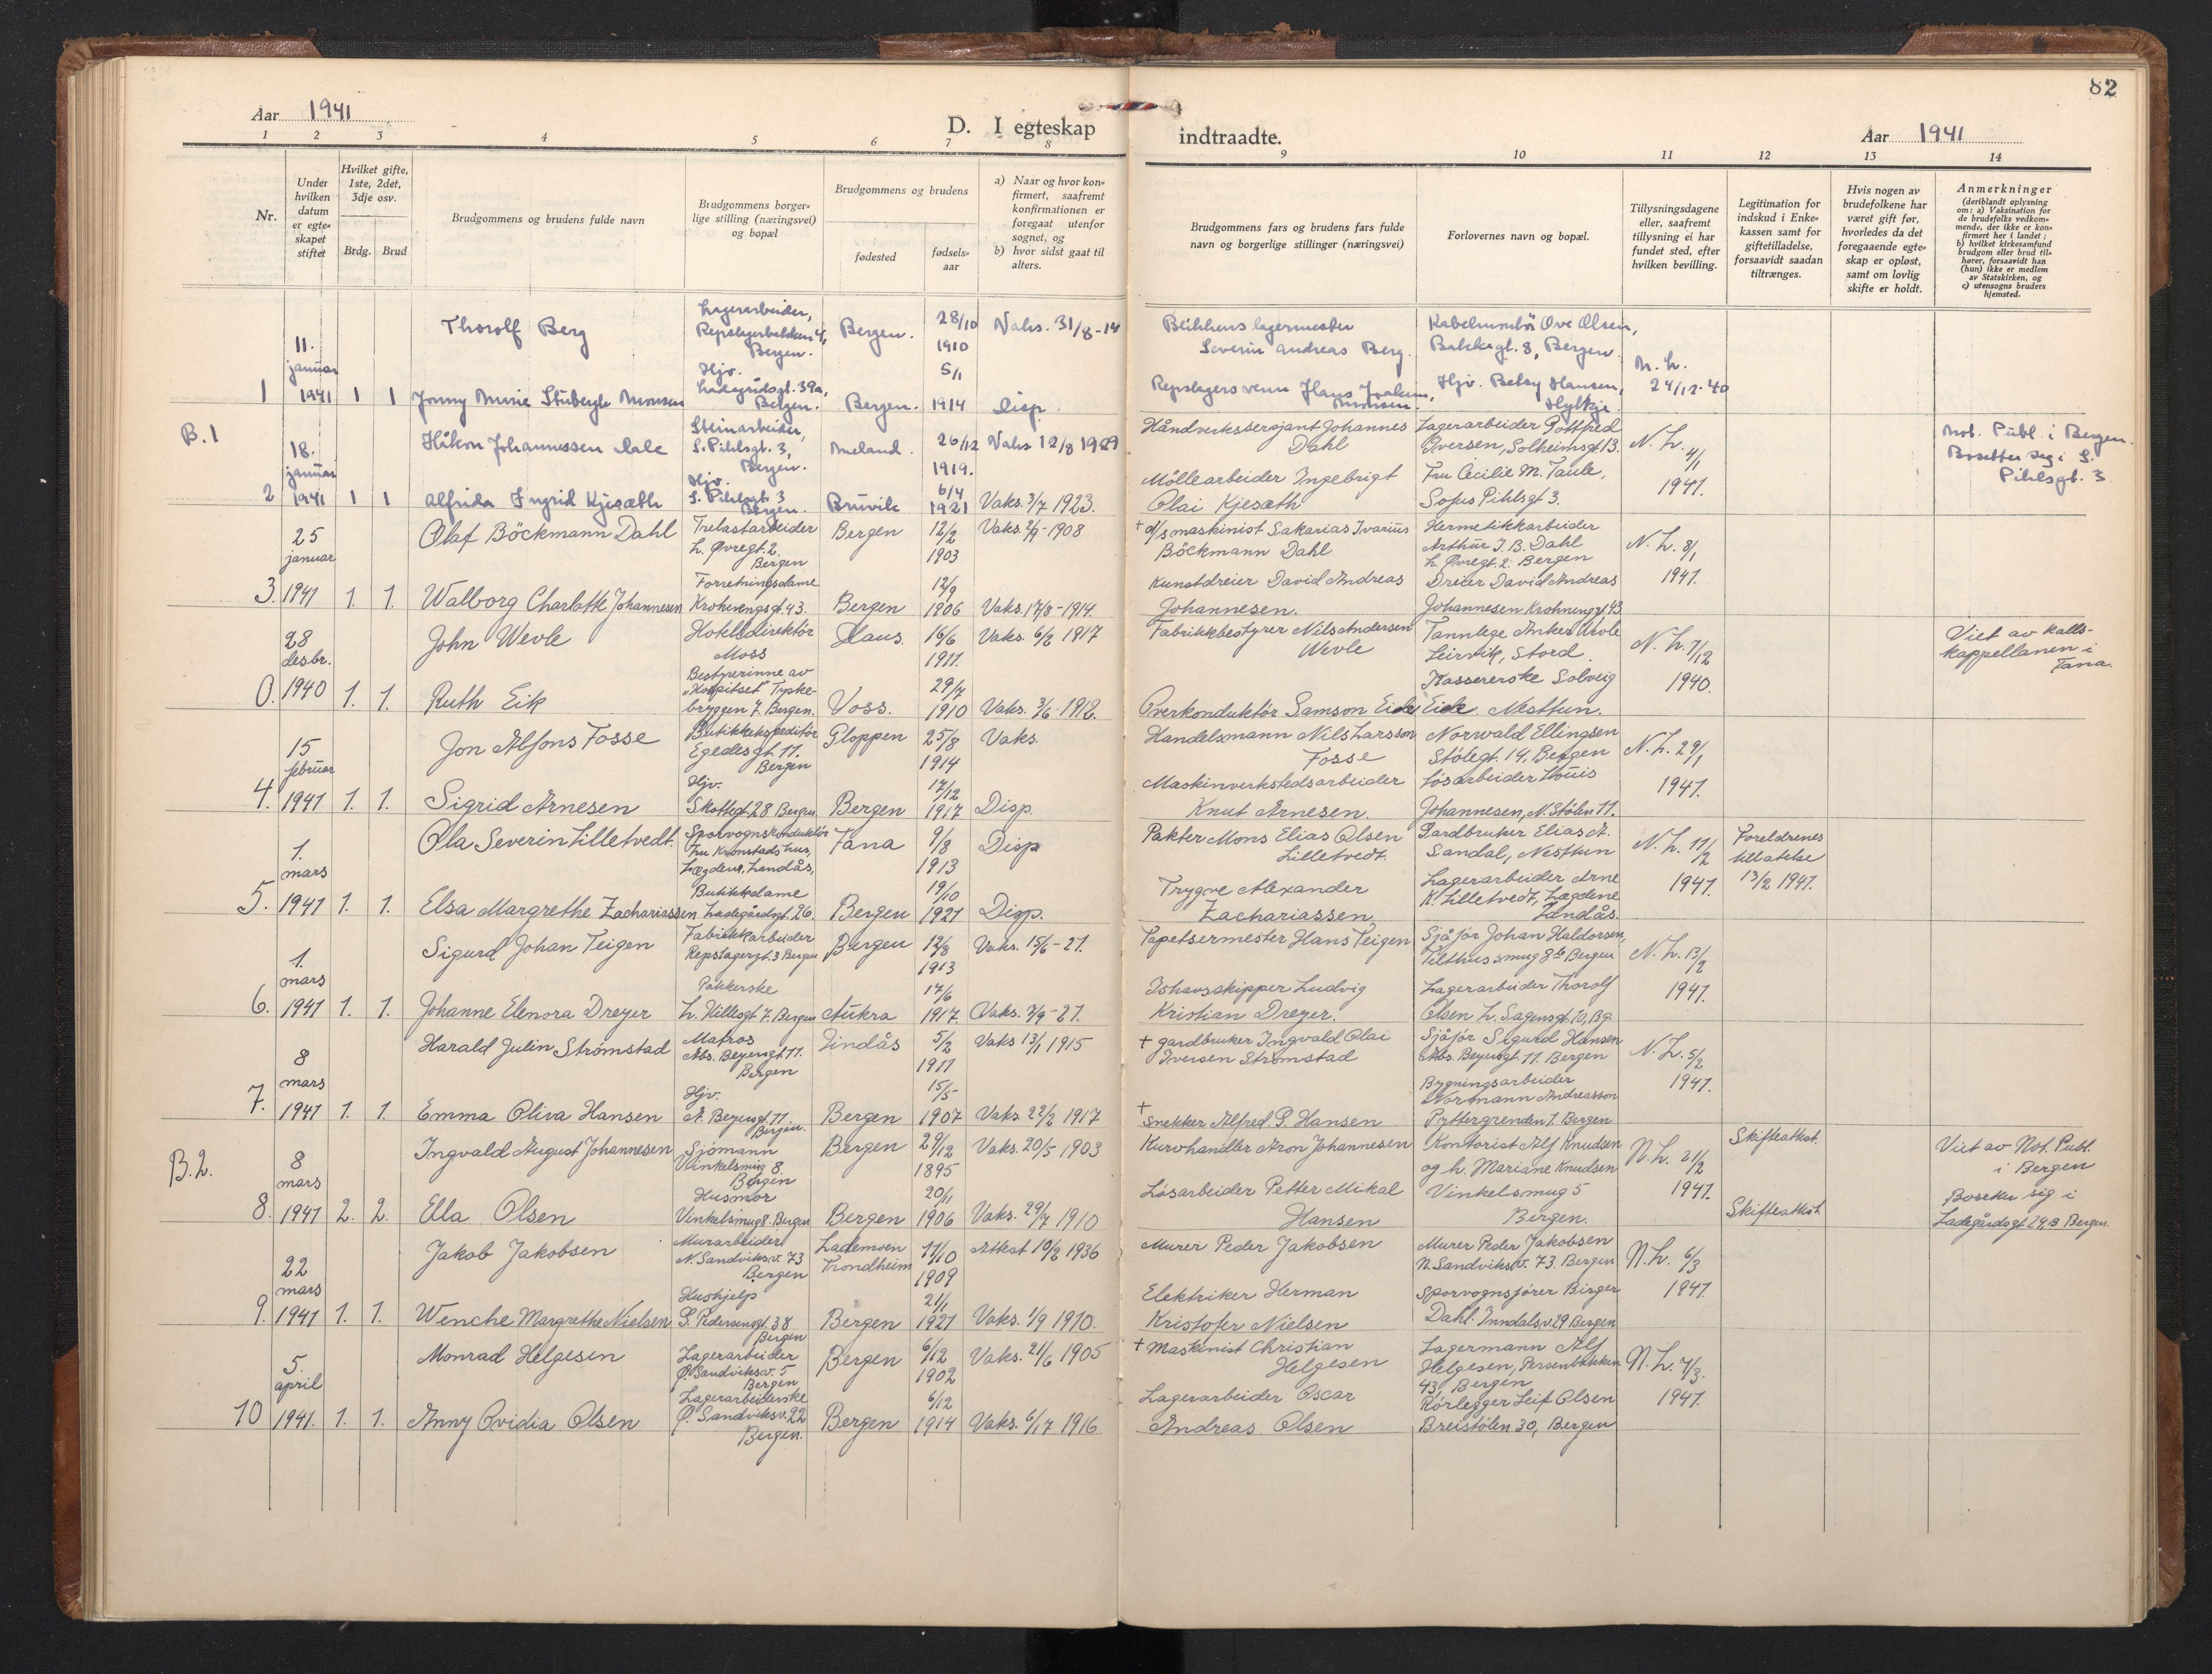 82
Aar 1941
D. I egteskap
indtraadte.
Aar 1941
1 2 3 4 5 6 7 8 9 10 11 12 13 14
Nr.
Under hvilken datum er egteskapet stiftet
Hvilket gifte, 1ste, 2det, 3dje osv.
Brdg. Brud
Brudgommens og brudens fulde navn
Brudgommens borgerlige stilling (næringsvei) og bopæl
Brudgommens og brudens
fødested
fødselsaar
a) Naar og hvor konfirmert, saafremt konfirmationen er foregaat utenfor sognet, og
b) hvor sidst gaat til alters.
Brudgommens fars og brudens fars fulde navn og borgerlige stillinger (næringsvei)
Forlovernes navn og bopæl.
Tillysningsdagene eller, saafremt tillysning ei har fundet sted, efter hvilken bevilling.
Legitimation for indskud i Enkekassen samt for giftetilladelse, forsaavidt saadan tiltrænges.
Hvis nogen av brudefolkene har været gift før, hvorledes da det foregaaende egteskap er opløst, samt om lovlig skifte er holdt.
Anmerkninger (deriblandt oplysning om: a) Vaksination for de brudefolks vedkommende, der ikke er konfirmert her i landet; b) hvilket kirkesamfund brudgom eller brud tilhører, forsaavidt han (hun) ikke er medlem av Statskirken, og c) utensogns bruders hjemsted.
1 11. januar 1941 1 1
Thorolf Berg
Lagerarbeider, Bergen.
Bergen. 28/10 1910 Vaks. 31/8-14
Severin Andreas Berg.
Kabelmontör Ove Olsen, Bakkegt. 8, Bergen.
N. L. 24/12-40
Jonny Marie Stubergh Monsen
Hjv. Ladegårdsgt. 39a, Bergen.
Bergen. 5/1 1914 Disp.
Repslagersvenn Hans Joakim Monsen.
Hjv. Betsy Hansen, Hylkje.
B.1
2 18. januar 1941 1 1
Håkon Johannessen Dale
Steinarbeider, S. Pihlsgt. 3, Bergen.
Meland. 26/12 1919. Vaks 12/8 1929
Håndverkssersjant Johannes Dahl
Lagerarbeider Gottfred Iversen, Solheimsgt. 13.
N. L. 4/1 1941.
Not. Publ. i Bergen. Bosetter seg i S. Pihlsgt. 3.
Alfrida Ingrid Kjesæth
Hjv. S. Pihlsgt. 3 Bergen.
Bruvik 6/4 1921 Vaks. 3/7 1923.
Möllearbeider Ingebrigt Olai Kjesæth
Fru Cecilie M. Taule, Sofus Pihlsgt 3.
3. 25 januar 1941 1. 1.
Olaf Böckmann Dahl
Trelastarbeider L. Øvregt. 2. Bergen
Bergen 12/2 1903 Vaks 2/9-1908
+ d/s maskinist Sakarias Ivarius Böckmann Dahl
Hermetikkarbeider Arthur I. B. Dahl L. Øvregt. 2. Bergen
N. L. 8/1 1941.
Walborg Charlotte Johannesen
Forretningsdame Krohnengsgt. 43.
Bergen 12/9 1906 Vaks. 17/8-1914.
Kunstdreier David Andreas Johannesen.
Dreier David Andreas Johannesen Krohnengsgt 43
0. 28 desbr. 1940 1. 1.
John Wevle
Hotelldirektör Moss
Haus. 16/6 1911. Vaks. 6/2 1917
Fabrikkbestyrer Nils Andersen Wevle
Tannlege Anker Wevle Leirvik, Stord.
N. L. 7/12 1940.
Viet av kallskappellanen i Fana.
Ruth Eik
Bestyrerinne av "Hospitset" Tyskebryggen 7. Bergen.
Voss. 29/7 1910 Vaks. 3/6-1912.
Overkonduktör Samson Eide
Kassererske Solveig Eide. Nesttun.
4. 15 februar 1941 1. 1.
Jon Alfons Fosse
Butikkekspeditör Egedesgt 11. Bergen
Gloppen 25/8 1914 Vaks.
Handelsmann Nils Larsson Fosse
Norvald Ellingsen Stölegt. 14, Bergen
N. L. 29/1 1941.
Sigrid Arnesen
Hjv. Skottegt 28 Bergen
Bergen 17/12 1917 Disp.
Maskinverkstedsarbeider Knut Arnesen.
Lösarbeider Louis Johannesen, N. Stölen 11.
5. 1. mars 1941 1. 1.
Ola Severin Lilletvedt.
Sporvognskonduktör Fru Kronstads hus, Lægdene, Landås,
Fana 9/8 1913 Disp
Pakter Mons Elias Olsen Lilletvedt.
Gardbruker Elias A. Sandal, Nesttun
N. L. 11/2 1941.
Foreldrenes tillatelse 13/2 1941.
Elsa Margrethe Zachariassen
Butikkdame Ladegårdsgt. 26.
Bergen 19/10 1921 Disp.
Trygve Alexander Zachariassen
Lagerarbeider Arne K. Lilletvedt, Lægdene Landås.
6. 1. mars 1941 1. 1.
Sigurd Johan Teigen
Fabrikkarbeider Repslagergt. 3 Bergen
Bergen 12/8 1913 Vaks. 15/6-21.
Tapetsermester Hans Teigen
Sjåför Johan Haldorsen, Telthussmug 8b Bergen
N. L. 13/2 1941.
Johanne Elenora Dreyer
Pakkerske L. Hillesgt. 7. Bergen
Aukra 17/6 1917. Vaks. 2/9-21.
Ishavsskipper Ludvig Kristian Dreyer.
Lagerarbeider Thorolf Olsen L. Sagensgt. 10, Bg.
7. 8 mars 1941 1. 1.
Harald Julin Strömstad
Matros Abs. Beyersgt 11. Bergen
Lindås 5/2 1911 Vaks 13/1 1915
+ gardbruker Ingvald Olai Iversen Strömstad
Sjåför Sigurd Hansen Abs. Beyersgt. 11. Bergen
N. L. 5/2 1941.
Emma Oliva Hansen
Hjv. A. Beyersgt. 11. Bergen.
Bergen 15/5 1907 Vaks 22/2 1917
+ Snekker Alfred G. Hansen
Bygningsarbeider Normann Andreasson Pyttergrenden 1. Bergen
B.2.
8. 8 mars 1941 2. 2.
Ingvald August Johannesen
Sjömann Vinkelsmug 8. Bergen
Bergen 29/12 1895 Vaks. 20/5 1903
Kurvhandler Aron Johannesen
Kontorist Alf Knudsen og h. Mariane Knudsen Vinkelsmug 5 Bergen.
N. L. 21/2 1941.
Skifteattest.
Viet av Not. Publ. i Bergen
Ella Olsen
Husmor Vinkelsmug 8. Bergen
Bergen 20/11 1906 Vaks. 29/7 1910
Lösarbeider Petter Mikal Hansen
Skifteattest.
Bosetter sig i Ladegårdsgt. 29B Bergen.
9. 22 mars 1941 1. 1.
Jakob Jakobsen
Murarbeider N. Sandviksv. 73 Bergen
Lademoen Trondheim 11/10 1909 Attest 10/2 1936
Murer Peder Jakobsen
Murer Peder Jakobsen N. Sandviksv. 73. Bergen
N. L. 6/3 1941.
Wenche Margrethe Nielsen
Hushjelp S. Pedersensgt. 38 Bergen
Bergen 21/1 1921 Vaks. 1/9 1910.
Elektriker Herman Kristofer Nielsen
Sporvognsförer Birger Dahl. Inndalsv. 29 Bergen
10 5. april 1941. 1. 1.
Monrad Helgesen
Lagerarbeider Ø. Sandviksv. 5 Bergen
Bergen 6/12 1902 Vaks. 21/6 1905
+ Maskinist Christian Helgesen
Lagermann Alf Helgesen, Persenbakken 43, Bergen
N. L. 7/3. 1941.
Anny Ovidia Olsen
Lagerarbeiderske Ø. Sandviksv. 22 Bergen.
Bergen 6/12 1914 Vaks. 6/17 1916
Lagerarbeider Oscar Andreas Olsen
Rörlegger Leif Olsen Breistölen 30, Bergen